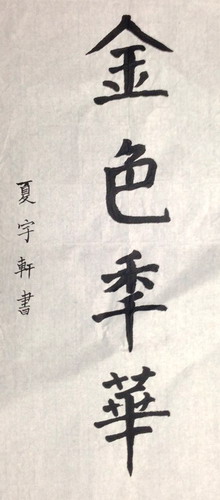 金色秊華
夏宇軒書